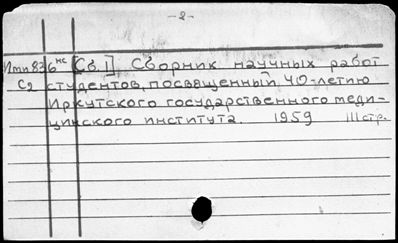 - 2 -
Имп 836 нс [Сб 1] Сборник научных работ
С2 студентов, посвященный 40-летию
Иркутского государственного меди-
цинского института. 1959 111 стр.